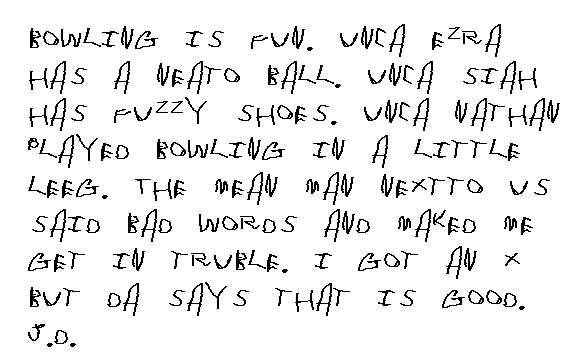 BOWLING IS FUN. UNCA EZRA
HAS A NEATO BALL. UNCA SIAH
HAS FUZZY SHOES. UNCA NATHAN
PLAYED BOWLING IN A LITTLE
LEEG. THE MEAN MAN NEXTTO US
SAID BAD WORDS AND MAKED ME
GET IN TRUBLE. I GOT AN X
BUT DA SAYS THAT IS GOOD.
J.D.